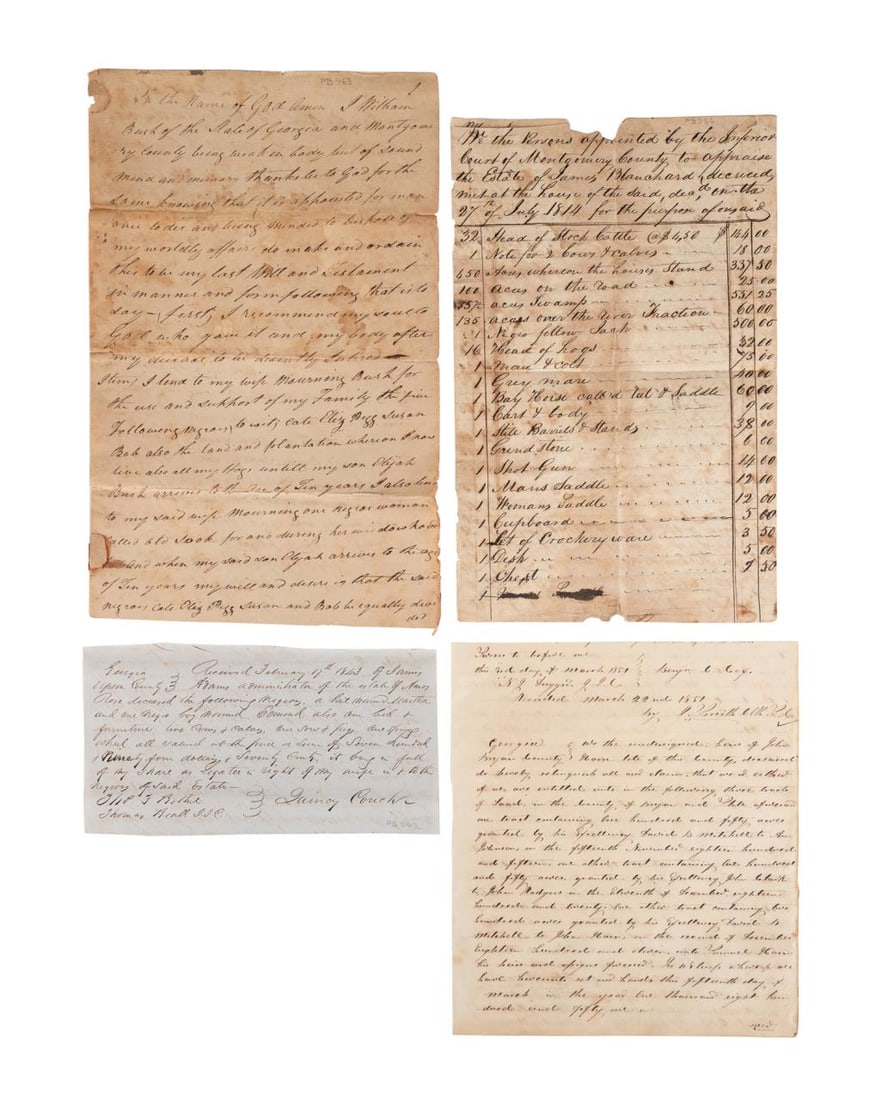 PB 963
In the Name of God Amen I William
Bush of the State of Georgia and Montgome
-ry County being weak in body but of sound
mind and memory thanks be to God for the
same knowing that it is appointed for man
once to die and being minded to dispose of
my worldly affairs do make and ordain
this to be my last Will and Testament
in manner and form following that is to
say - first, I recommend my soul to
God who gave it and my body after
my decease to be decently Intered
Item I lend to my wife Mourning Bush for
the use and support of my Family the five
Following negroes to wit, Cate Eliz Pegg Susan
Bob also the land and plantation whereon I now
live also all my Hogs untill my son Elijah
Bush arrives to the Age of Ten years I also lend
to my said wife Mourning one negroe woman
called old Sook for and during her widowhood
and when my said son Elijah arrives to the age
of Ten years my will and desire is that the said
negroes Cate Eliz Pegg Susan and Bob be equally divi
ded
We the Persons appointed by the Inferior
Court of Montgomery County to appraise
the Estate of James Blanchard, deceased,
met at the house of the said, decd, on the
27th of July 1814 for the purpose of
32 Head of Stock Cattle @ $4,50 $ 144 00
1 Note for 2 Cows & calves 18 00
450 Acres whereon the houses Stand 337 50
100 acres on the road 25 00
acres Swamp 531 25
135 acres over the river 60 00
1 Negro fellow Jack 500 00
16 Head of Hogs 32 00
1 Mare & colt 75 00
1 Grey mare 40 00
1 Bay Horse called & Saddle 60 00
1 Cart & body 9 00
1 Still Barrels & Stands 38 00
1 Grind stone 6 00
1 Shot Gun 14 00
1 Mans Saddle 12 00
1 Womans Saddle 12 00
1 Cupboard 5 00
1 Set of Crockery ware 3 50
1 Desk 5 00
1 Chest 50
Georgia Received February 17th 1843 of James
Upson County Adams administrator of the estate of Amos
Rose deceased the following Negroes, a Girl named Martha
and one Negro boy named Edmond also one bed &
furniture two Cows & Calves, one Sow & pigs
which all valued at the price & Sum of Seven hundred
& Ninety four dollars & Seventy Cents, it being in full
of my share as Legatee in right of my wife in & to the
Negroes of said Estate
Bethel Quincy Couch
Thomas Beall J.I.C.
Sworn to before me
this 22d day of March 1851 Benja. C.
N J J.I.C.
Recorded March 22nd 1851
by
Georgia We the undersigned, heirs of John
Bryan County Harn late of this County, deceased
do hereby relinquish all and claim, that we or either
of us are entitled unto in the following three tracts
of Land in the County of Bryan and State aforesaid
one tract containing two hundred and fifty acres
granted by his Excellency David B Mitchell to
Johnson on the fifteenth November eighteen hundred
and fifteen; one other tract containing two hundred
and fifty acres granted by his Excellency John Clark
to John Rodgers on the Eleventh of December eighteen
hundred and twenty; one other tract containing two
hundred acres granted by his Excellency David B
Mitchell to John Harn, on the second of December
Eighteen hundred and eleven, unto Samuel Harn
his heirs and assigns forever. In witness whereof we
have hereunto set our hands this fifteenth day of
March in the year one thousand eight hun
dred and fifty one